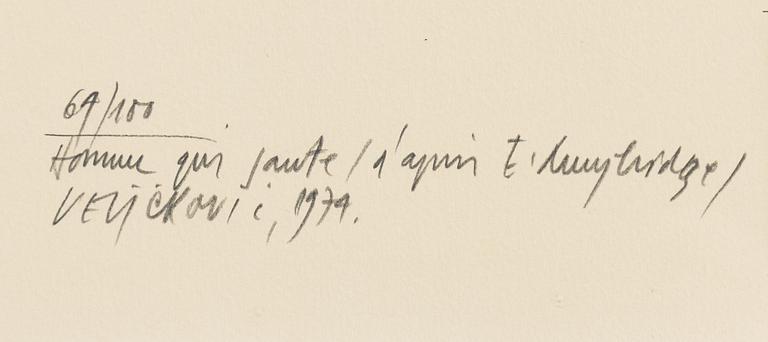 64/100
Homme qui saute / d'après E. Muybridge /
VELIČKOVIĆ, 1974.